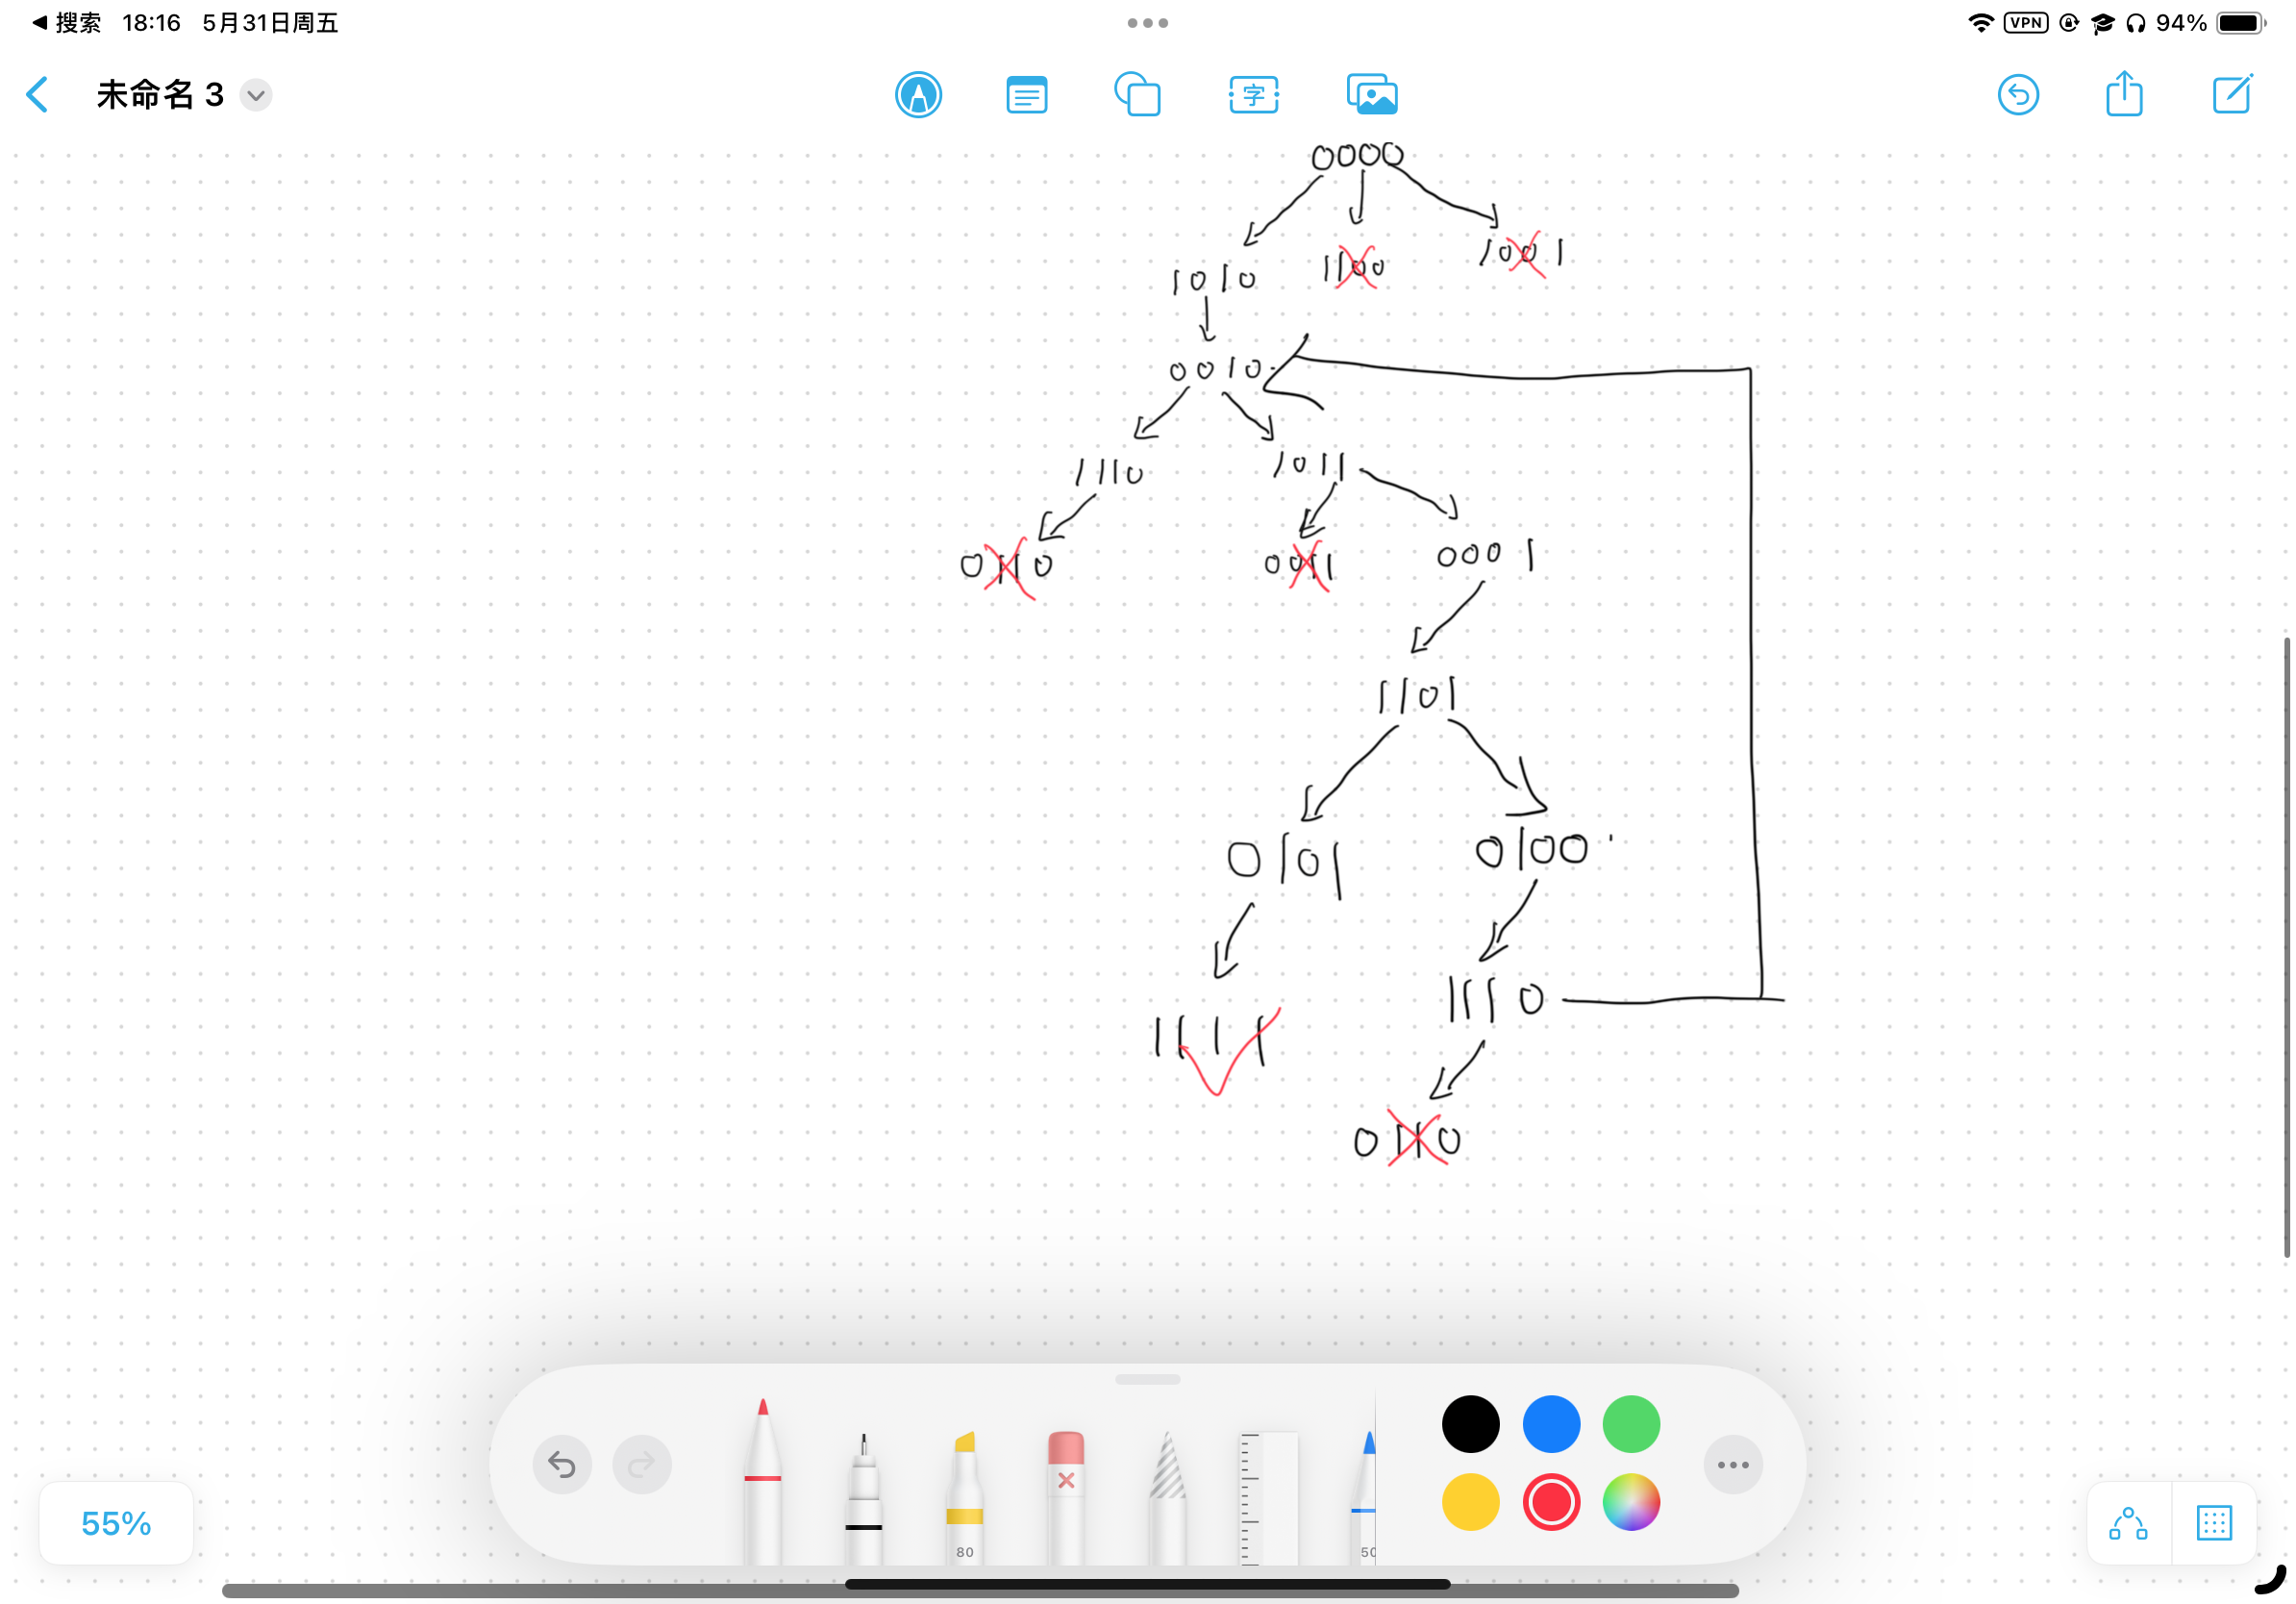 搜索 18:16 5月31日周五
VPN 94%
未命名 3
字
0000
1010 1100 1001
0010
1110 1011
0110 0011 0001
1101
0101 0100
1111 1110
0110
80
50
55%